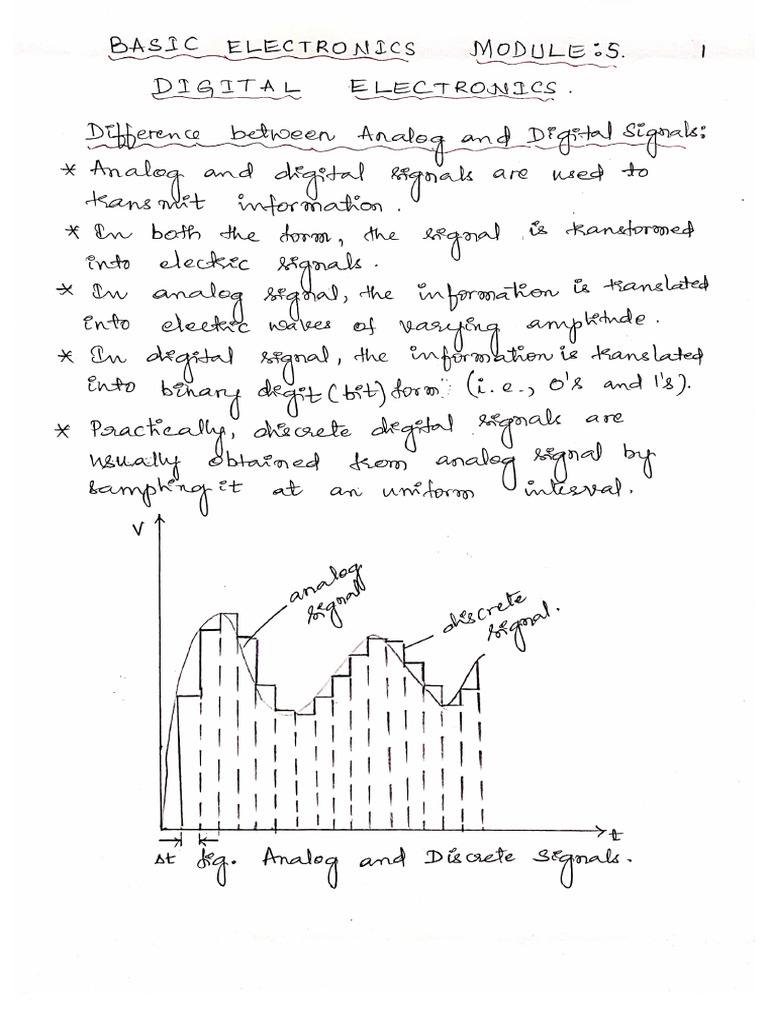 BASIC ELECTRONICS MODULE:5. 1
DIGITAL ELECTRONICS.
Difference between Analog and Digital Signals:
* Analog and digital signals are used to
transmit information.
* In both the form, the signal is transformed
into electric signals.
* In analog signal, the information is translated
into electric waves of varying amplitude.
* In digital signal, the information is translated
into binary digit (bit) form (i.e., 0's and 1's).
* Practically, discrete digital signals are
usually obtained from analog signal by
sampling it at an uniform interval.
V
analog
signal
discrete
signal.
t
Δt fig. Analog and Discrete Signals.